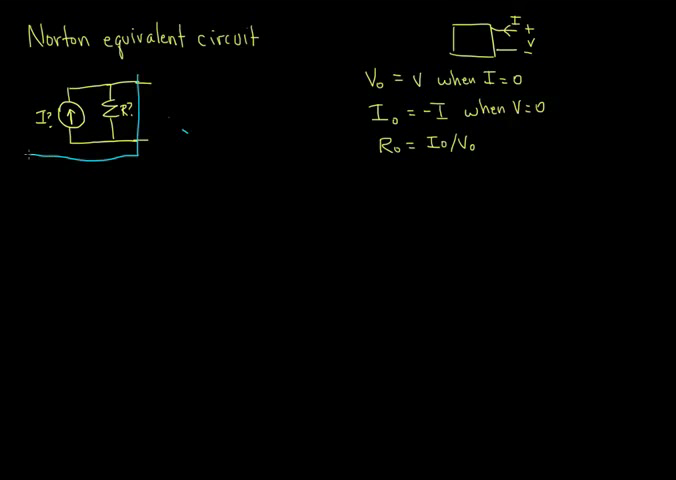 Norton equivalent circuit
I
+
V
-
V₀ = V when I = 0
I₀ = -I when V = 0
R₀ = I₀/V₀
I?
R?